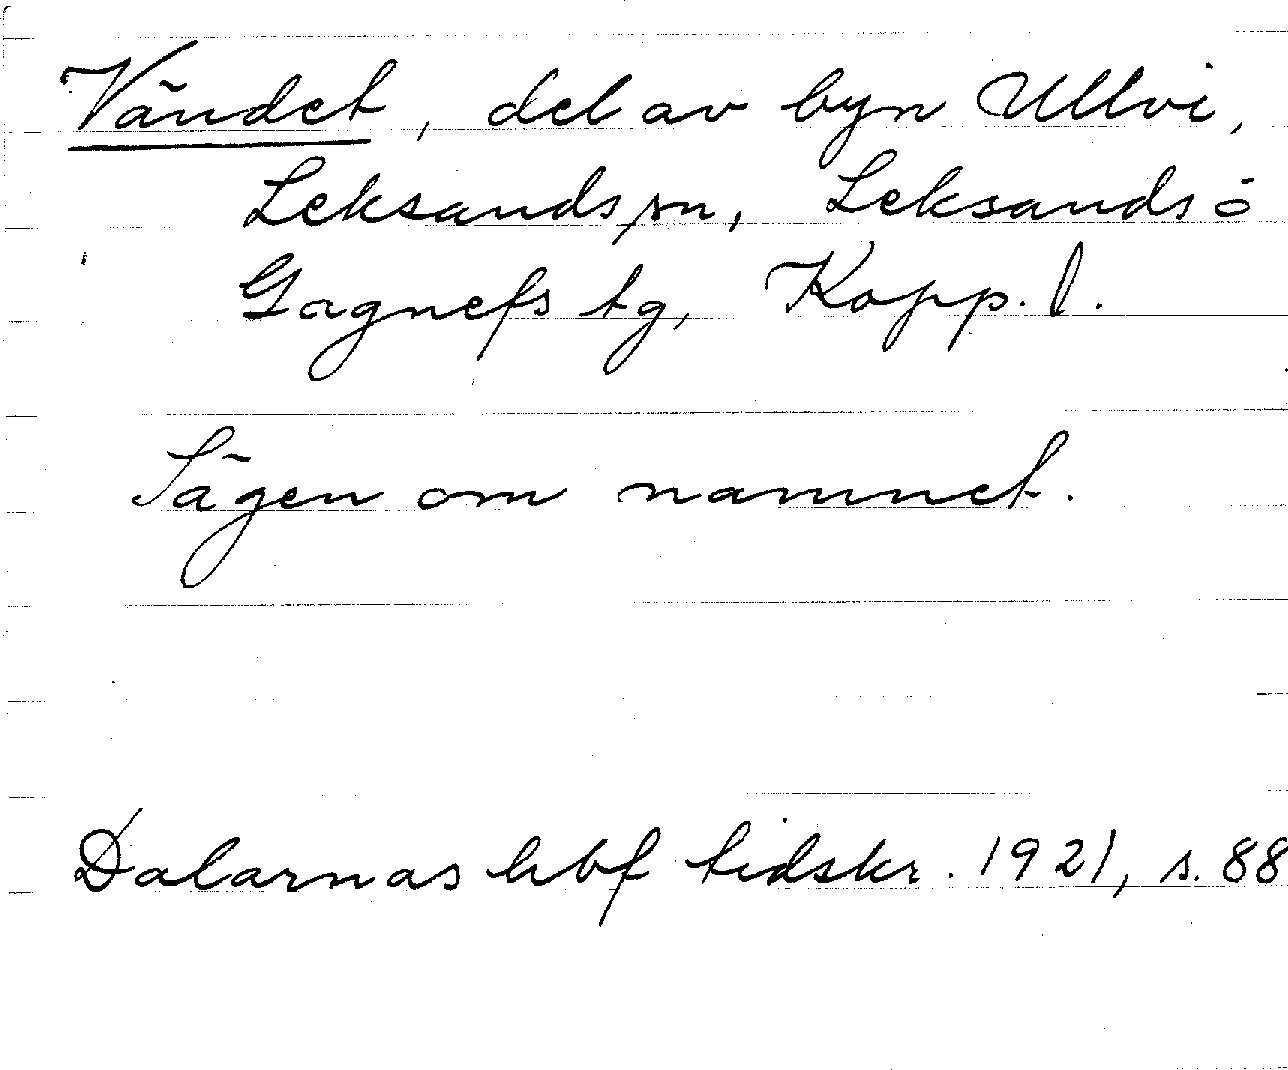 Vändet, del av byn Ullvi,
Leksands sn, Leksands o
Gagnefs tg, Kopp. l.
Sägen om namnet.
Dalarnas hbf tidskr. 1921, s. 88